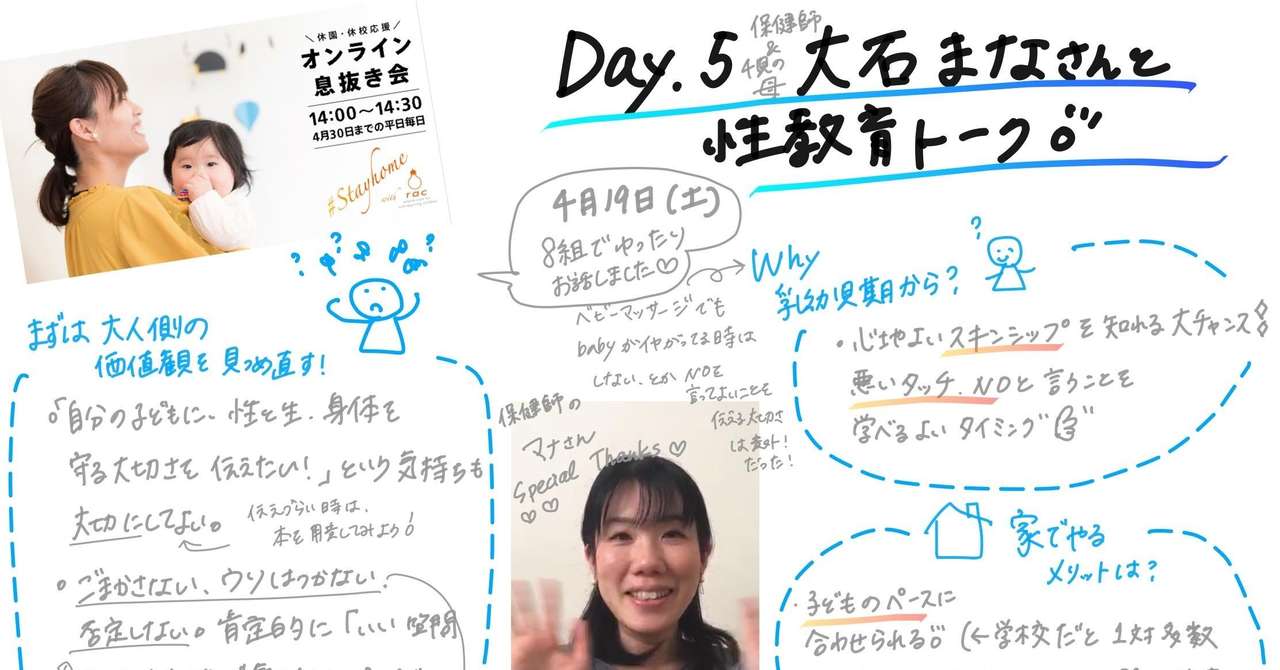 ＼休園・休校応援／
オンライン
息抜き会
14:00〜14:30
4月30日までの平日毎日
#Stayhome
with
rac
Day.5 大石まなさんと
保健師
&
4児の
母
性教育トーク
4月19日(土)
8組でゆったり
お話しました♡
ベビーマッサージでも
babyがイヤがってる時は
しない、とか NOを
言ってよいことを
伝える大切さ
は意外!
だった!
まずは大人側の
価値観を見つめ直す!
。「自分の子どもに、性と生、身体を
守る大切さを伝えたい!」という気持ちも
大切にしてよい。
伝えづらい時は、
本を用意してみよう!
。ごまかさない、ウソはつかない
否定しない。肯定的に「いい質問
保健師の
マナさん
Special Thanks♡
♡♡
Why
乳幼児期から?
・心地よいスキンシップを知れる大チャンス!
悪いタッチ、NOと言うことを
学べるよいタイミング
家でやる
メリットは?
・子どものペースに
合わせられる (←学校だと1対多数